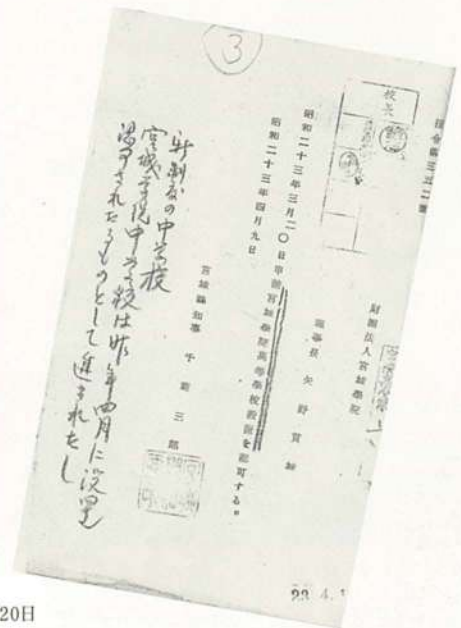 ③
校長
指令第三五二號
財團法人宮城學院
理事長 矢野貫城
昭和二十三年三月二〇日申請宮城學院高等學校設置を認可する。
昭和二十三年四月九日
宮城縣知事 千葉三郎
新制度の中学校
宮城学院中学校は昨年四月に設置
認可されたるものとして進まれたし
23. 4.
20日